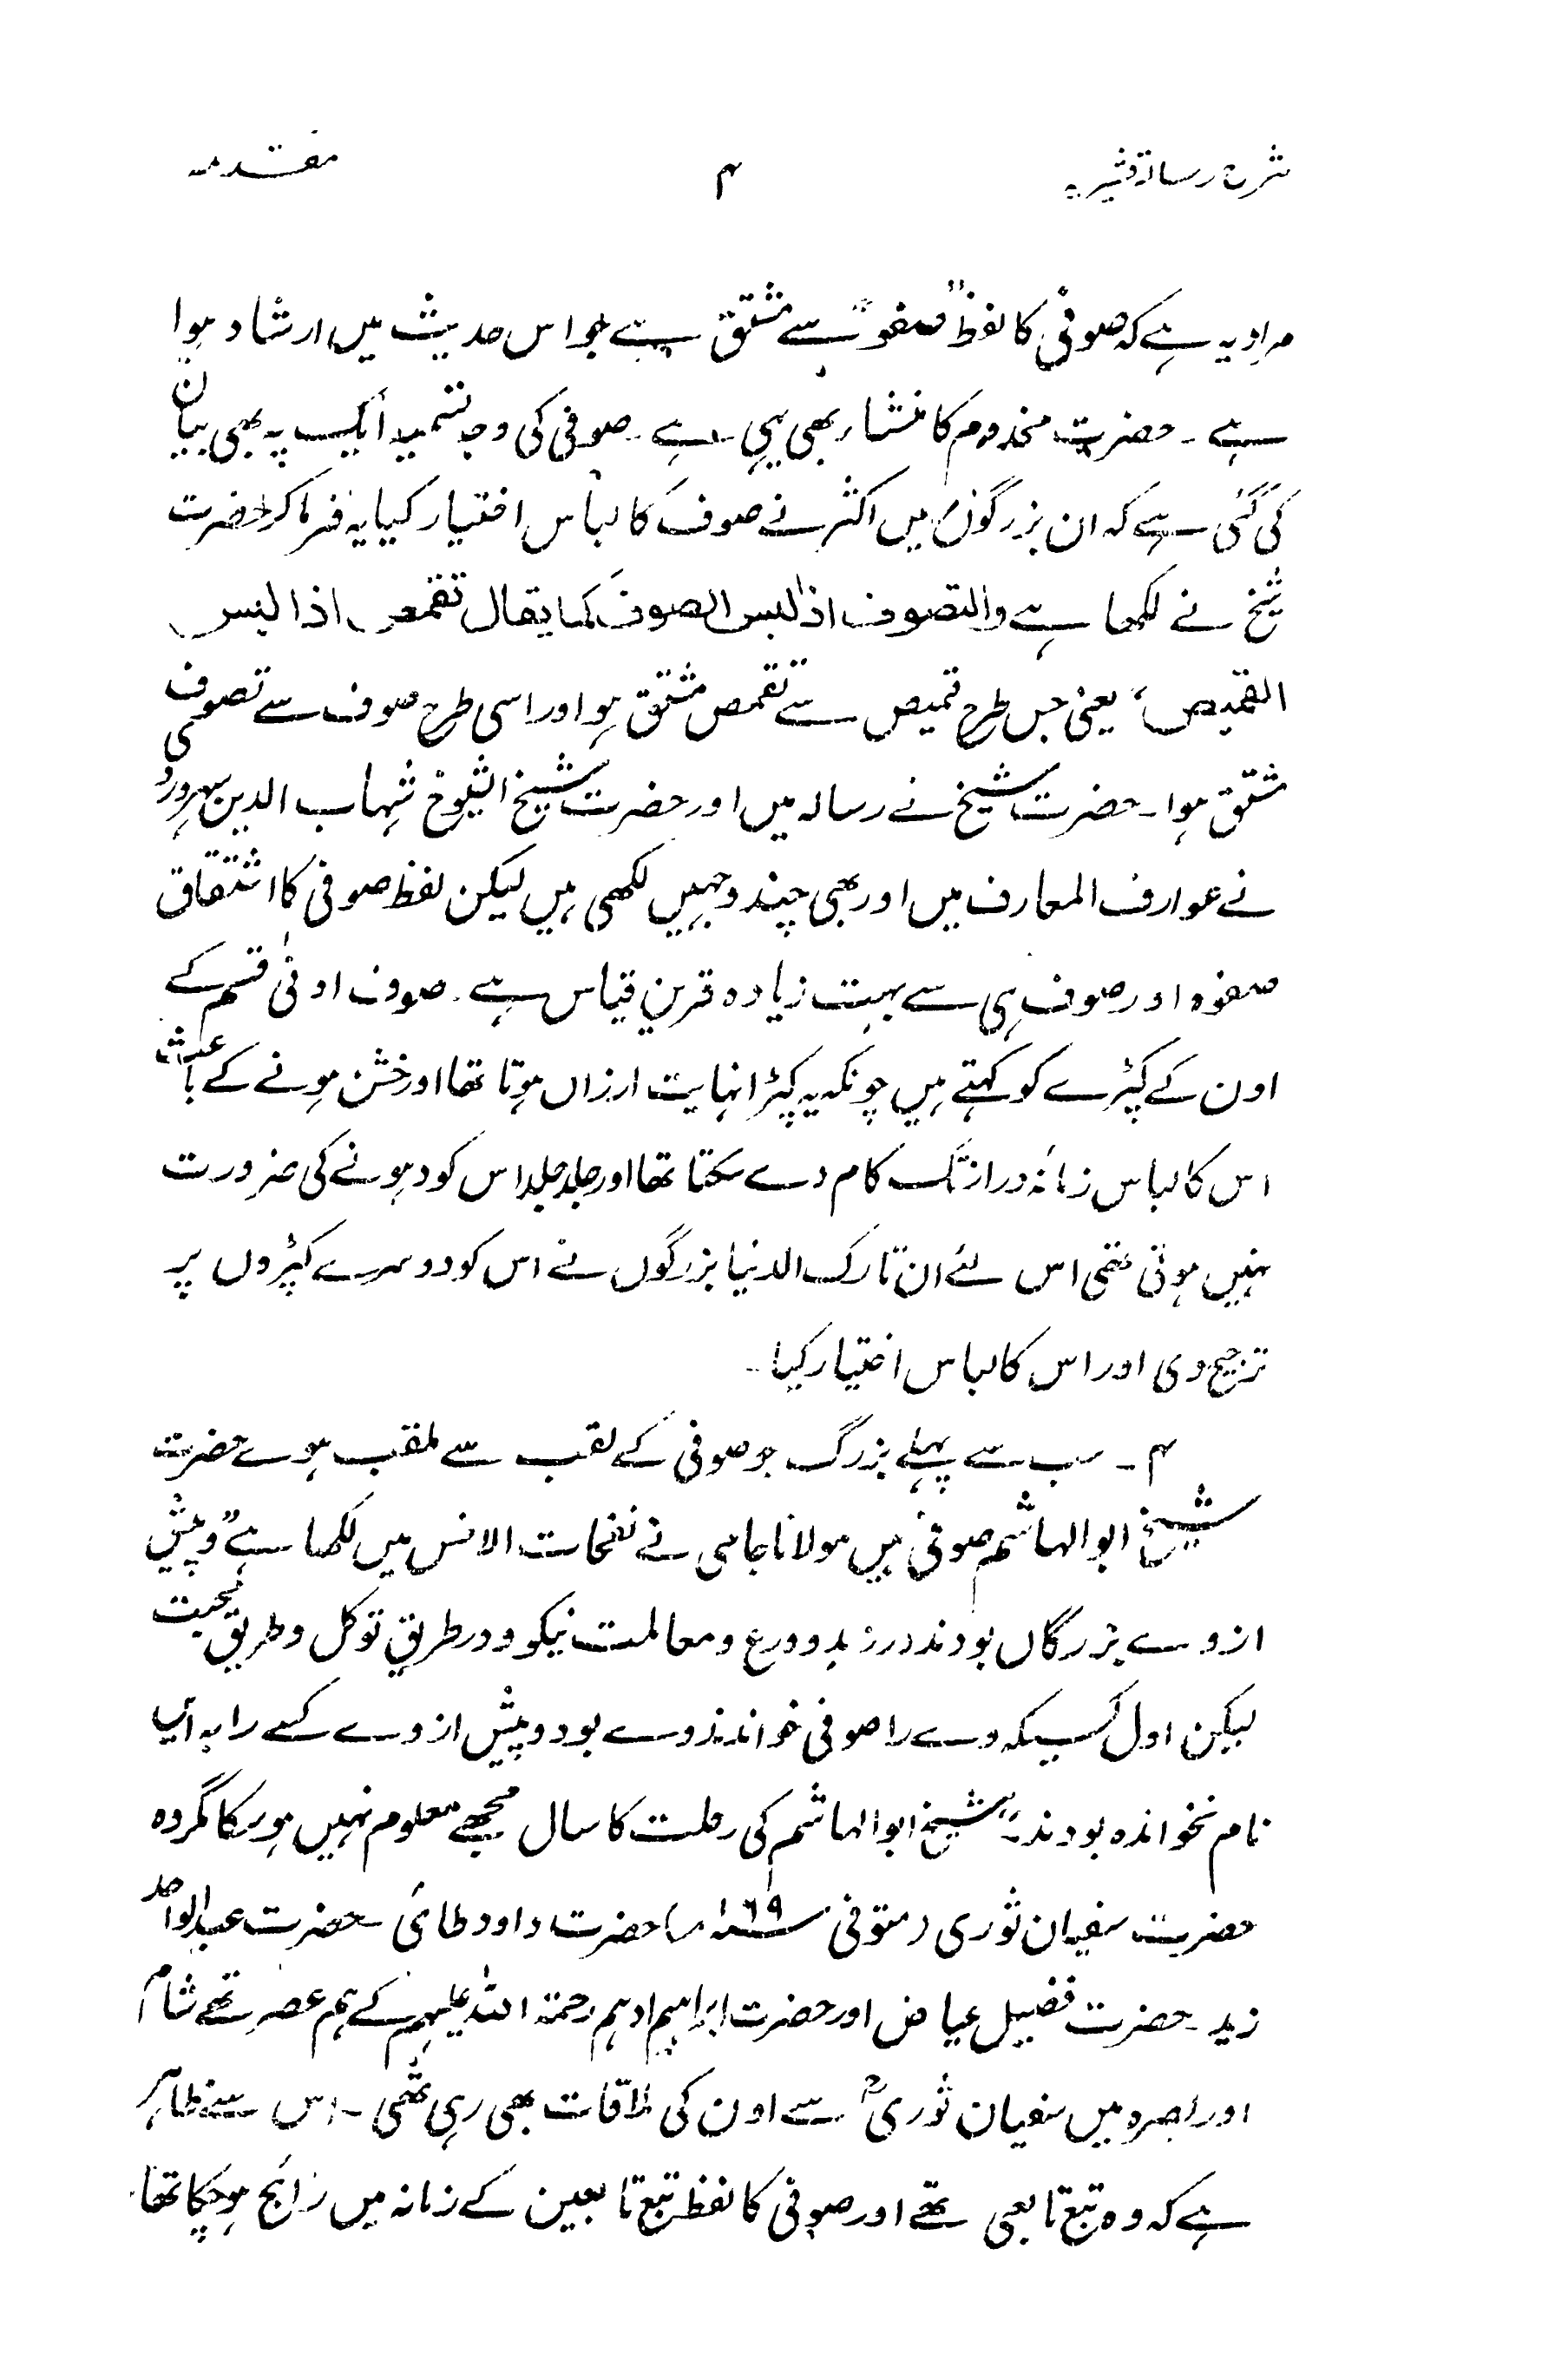 شرح رسالۂ قشیریہ ۴ مقدمہ
مراد یہ ہے کہ صوفی کا لفظ "صفو" سے مشتق ہے جو اس حدیث میں ارشاد ہوا
ہے ۔ حضرت مخدوم کا منشار بھی یہی ہے ۔ صوفی کی وجہ تسمیہ ایک یہ بھی بیان
کی گئی ہے کہ ان بزرگوں میں اکثر نے صوف کا لباس اختیار کیا یہ فرما کر حضرت
شیخ نے لکھا ہے والتصوف اذا لبس الصوف کما یقال تقمص اذا لبس
القمیص، یعنی جس طرح قمیص سے تقمص مشتق ہو اور اسی طرح صوف سے تصوف
مشتق ہوا ۔ حضرت شیخ نے رسالہ میں اور حضرت شیخ الشیوخ شہاب الدین سہروردی
نے عوارف المعارف میں اور بھی چند وجہیں لکھی ہیں لیکن لفظ صوفی کا اشتقاق
صفوہ اور صوف ہی سے بہت زیادہ قرین قیاس ہے ۔ صوف ادنیٰ قسم کے
اون کے کپڑے کو کہتے ہیں چونکہ یہ کپڑا نہایت ارزاں ہوتا تھا اور خشن ہونے کے باعث
اس کا لباس زمانۂ دراز تک کام دے سکتا تھا اور جلد جلد اس کو دہونے کی ضرورت
نہیں ہوتی تھی اس لئے ان تارک الدنیا بزرگوں نے اس کو دوسرے کپڑوں پر
ترجیح دی اور اس کا لباس اختیار کیا ۔
۴ ۔ سب سے پہلے بزرگ جو صوفی کے لقب سے ملقب ہوے حضرت
شیخ ابو الہاشم صوفی ہیں مولانا جامی نے نفحات الانس میں لکھا ہے "و پیش
از وے بزرگاں بودند در زہد و ورع و معاملت نیکو و در طریق توکل و طریق محبت
لیکن اول کسیکہ وے را صوفی خواندند وے بود و پیش از وے کسے را بہ ایں
نام نخواندہ بودند ۔" شیخ ابو الہاشم کی رحلت کا سال مجھے معلوم نہیں ہو سکا مگر وہ
حضرت سفیان ثوری (متوفی ۱۶۹ھ) حضرت داود طائی ۔ حضرت عبد الواحد
زید ۔ حضرت فضیل عیاض اور حضرت ابراہیم ادہم رحمۃ اللہ علیہم کے ہم عصر تھے شام
اور بصرہ میں سفیان ثوریؒ سے اون کی ملاقات بھی رہی تھی ۔ اس سے ظاہر
ہے کہ وہ تبع تابعی تھے اور صوفی کا لفظ تبع تابعین کے زمانہ میں رائج ہو چکا تھا ۔